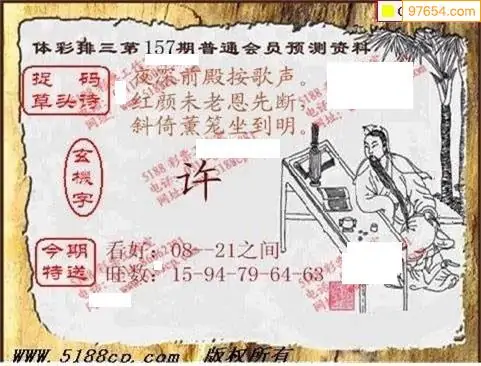 97654.com
体彩排三第157期普通会员预测资料
捉码
草头诗
夜 前殿按歌声。
红颜未老恩先断
斜倚薰笼坐到明。
玄機字
许
今期
特送
看好:08--21之间
旺数:15-94-79-64-63
www.5188cp.com 版权所有